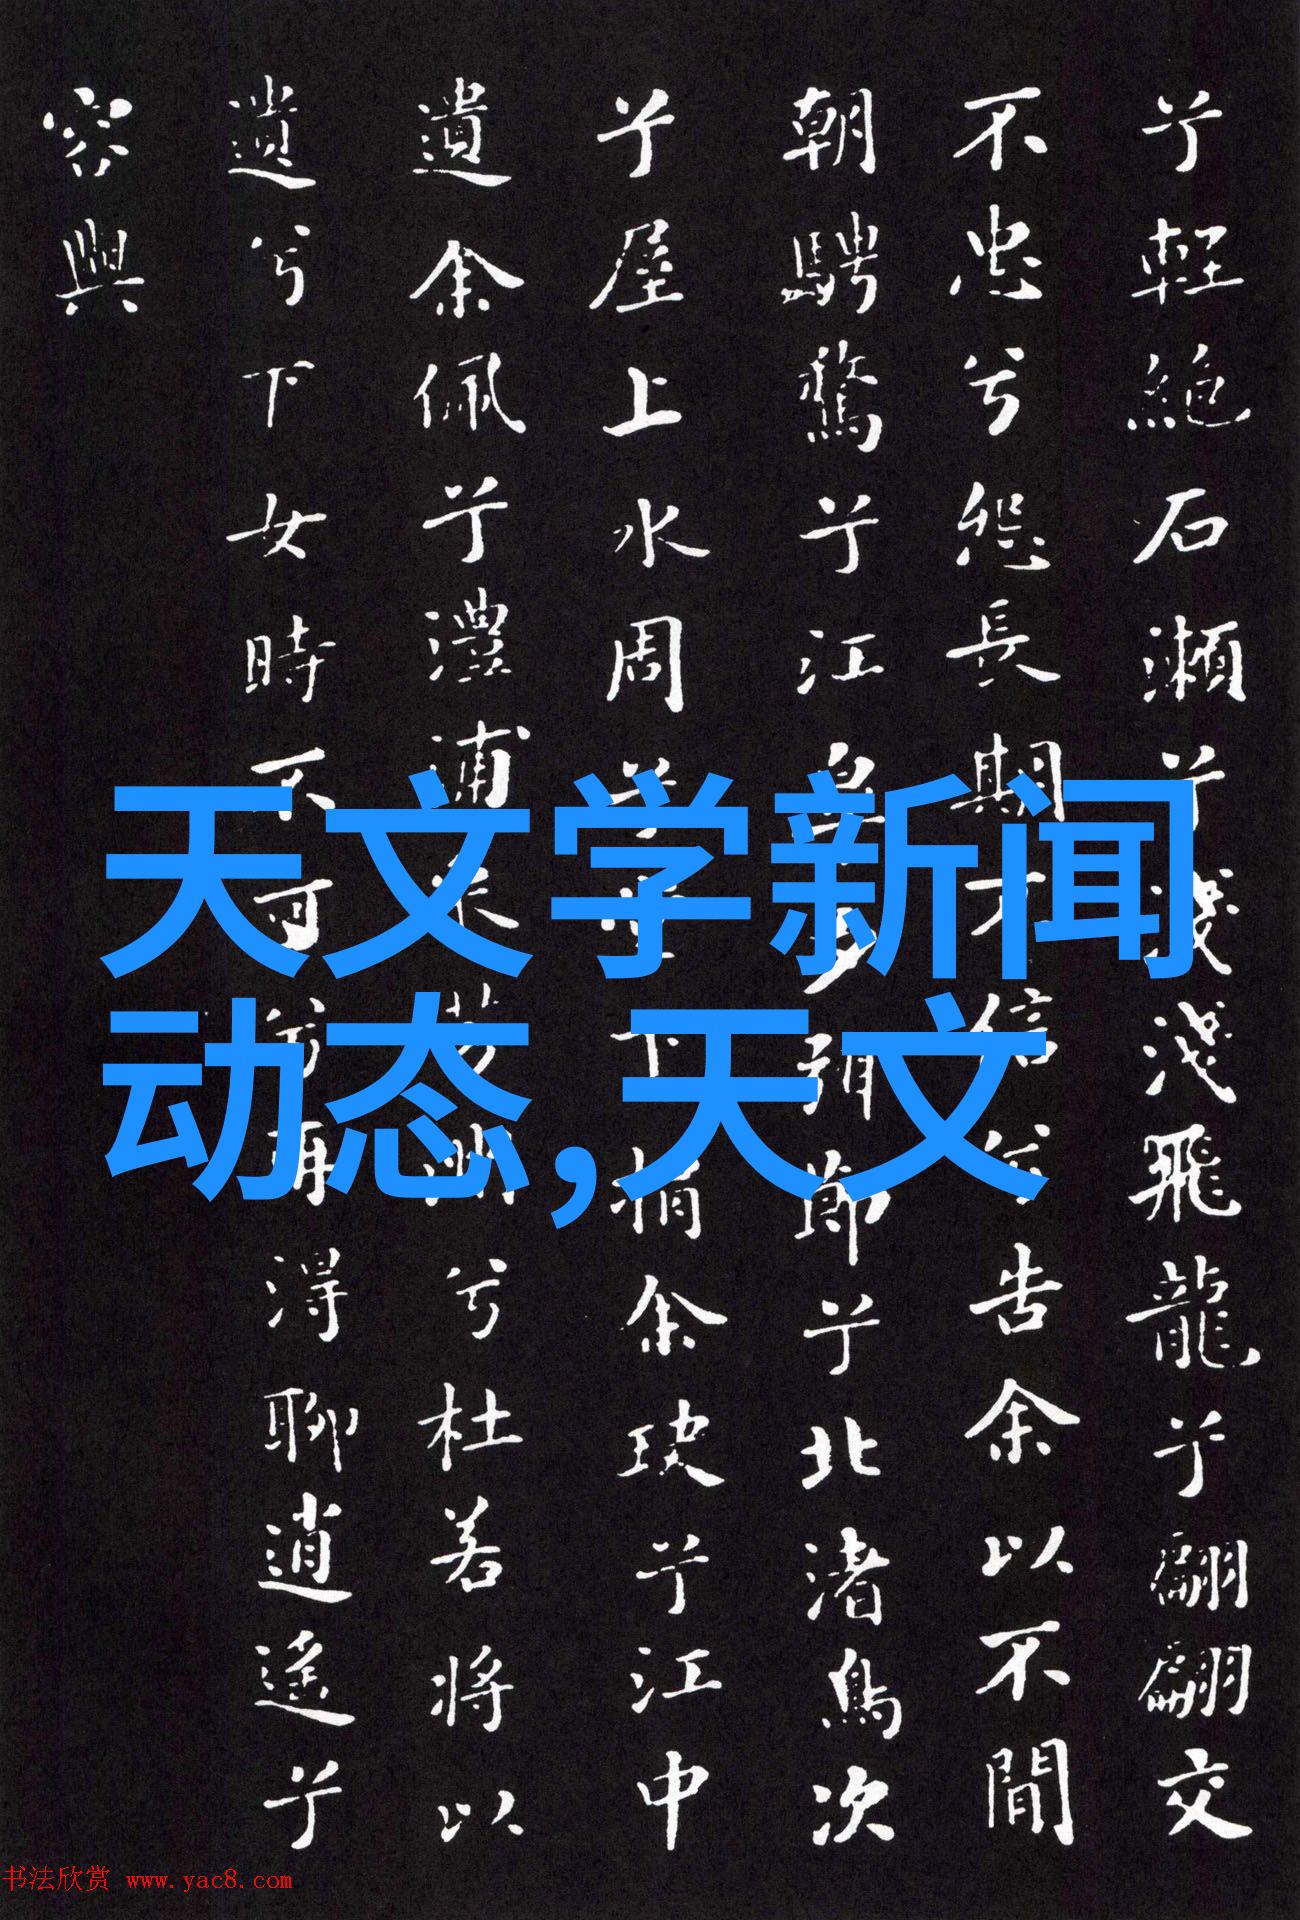 兮輕絕石瀨兮淺淺飛龍兮翩翩交
不忠兮怨長期不信兮告余以不閒
朝騁騖兮江皋多弭節兮北渚鳥次
兮屋上水周兮堂下捐余玦兮江中
遺余佩兮澧浦采芳洲兮杜若將以
遺兮下女時不可兮再得聊逍遙兮
容與
天文学新闻
动态,天文
书法欣赏 www.yac8.com